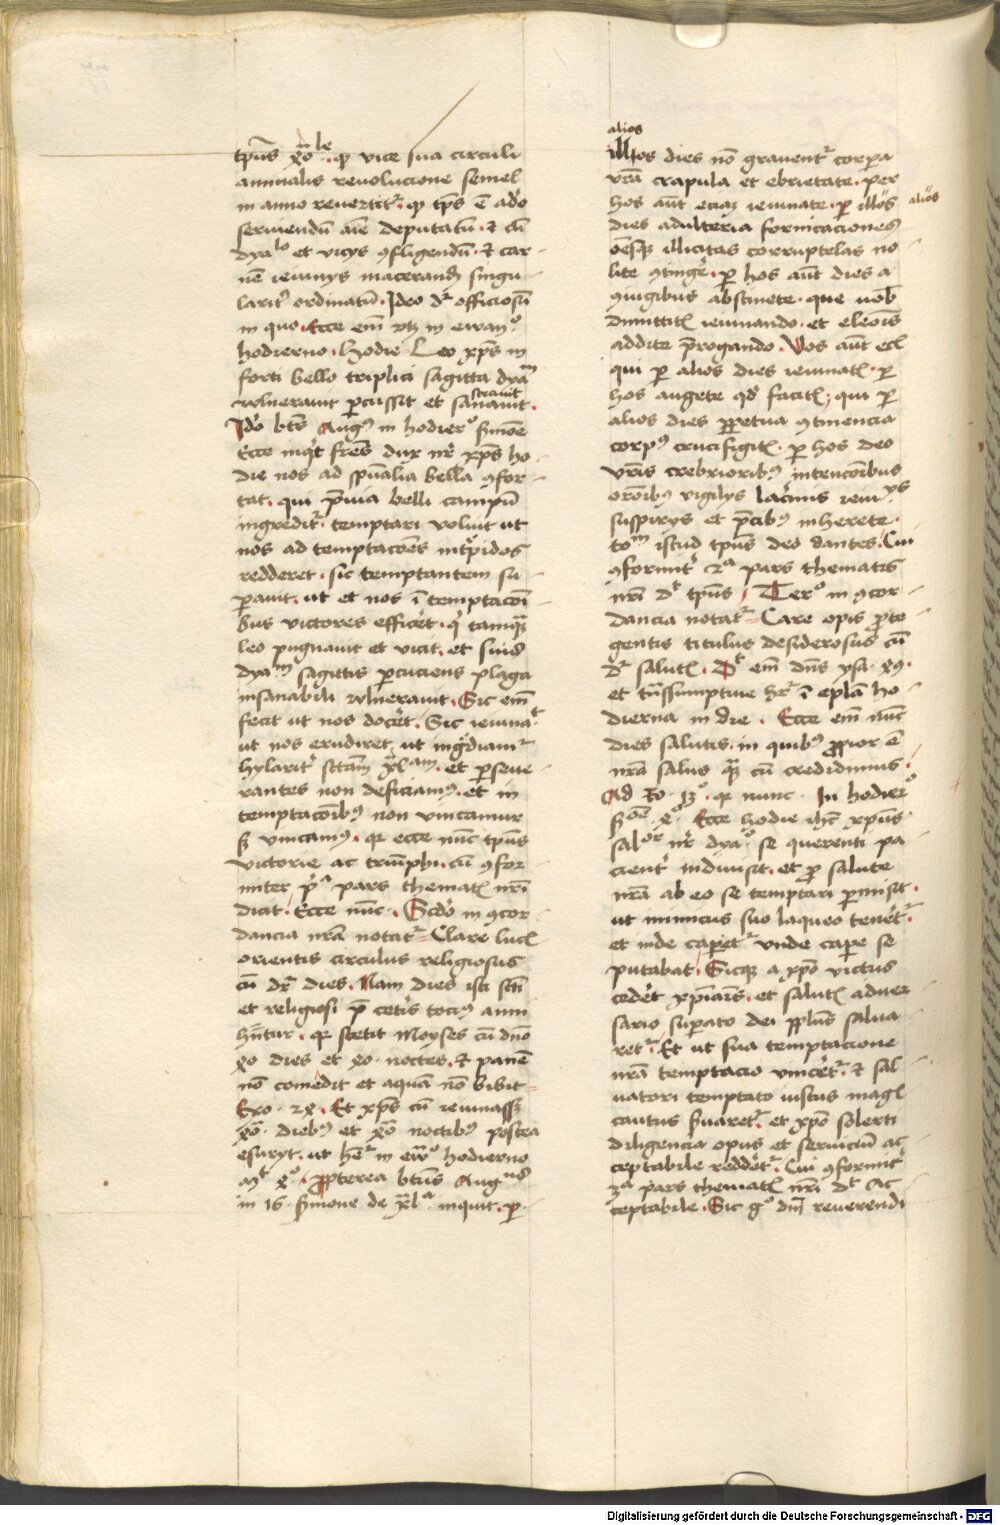 tp̄us xl̄o le · q̨ vice sua circuli
annualis reuolucione semel
in anno reuertit᷑ · q̨ tp̄s ē adō
seruiendū aīe deputatū · ⁊ cū
dyalo et vicijs ꝯfligendū · ⁊ car
nē ieiunijs macerand singu
larit᷑ ordinatū · Ideo d᷑ officiosū
in quo · Ecce em̄ vtz in ewano
hodierno · Hodie Leo xp̄s in
forti bello triplici sagitta dyām
wlnerauit ꝑcussit et sanauit · strauit
Idō bt̄s Augꝰ in hodiero s̄mōe
Ecce inqͥt fr̄es dux nr̄ xp̄s ho
die nos ad sp̄ualia bella ꝯfor
tat · qui p̄uia belli campū
ingredit᷑ · temptari voluit ut
nos ad temptacōēs intͤpidos
redderet · sic temptantem su
ꝑauit · ut et nos ī temptacōī
bus victores efficēt · qͥ tamqꝫ
leo pugnauit et vicit · et suis
dyam sagittis ꝑcuciens plaga
insanabili wlnerauit · Sic em̄
fecit ut nos docēt · Sic ieiunat
ut nos erudiret ut ingͤdiam᷑
hylarit᷑ sctām xl̄am · et ꝑseue
rantes non deficiamꝰ · et in
temptacōībꝰ non vincamur
sꝫ vincamꝰ · qꝛ ecce nūc tp̄us
victorie ac triūphi · cū ꝯfor
miter pͥa pars themat̄ nr̄i
dicit · Ecce nūc · Scdō in ꝯcor
dancia nr̄a notat᷑ Clare luc̄
orientis circulus religiosus
cū dr̄ dies · Nam dies isti sct̄i
et religiosi p̄ cet᷑is tociꝰ anni
hn̄tur · qꝛ stetit Moyses cū dn̄o
xlo dies et xlo noctes · ⁊ panē
nō comedit et aquā nō bibit
Exo · 24 · Et xp̄s cū ieiunassꝫ
xl̄o diebꝰ et xl̄o noctibꝰ postea
esuryt · ut hē᷑ in ew̄o hodierno
Mt 4o · propterea bt̄us Augnus
in 16 s̄mone de xl̄a inquit · ꝑ
alios
illos dies nō grauent᷑ corpora
vr̄a crapula et ebrietate · per
hos aūt eciaꝫ ieiunate · ꝑ illos alios
dies adulteria fornicaciones
oēsqꝫ illicitas corruptelas no
lite ꝯtingē᷑ · ꝑ hos aūt dies a
ꝯiugibus abstinete · que uob̄
dimittit̄ ieiunando · et eleōīs
addite p̄rogando · Vos aūt ec̄
qui ꝑ alios dies ieiunat̄ · ꝑ
hos augete qd̄ facit̄ · qui ꝑ
alios dies ꝑpetua ꝯtinencia
corpꝰ crucifigit̄ · ꝑ hos deo
vr̄is crebrioribꝰ intencōībus
orōībꝰ vigilijs lacͥmis ieiuijs
suspirijs et p̄cibꝰ inherete ·
tom istud tp̄us deo dantes · Cui
ꝯformit᷑ 2a pars thematis
nr̄i dt tp̄us Tero in ꝯcor
dancia notat᷑ Care opis ꝓte
gentis titulus desiderosus cū
d᷑ salut̄ · Dt em̄ dn̄s ysa 49
et tn̄ssumptiue h᷑ ī ep̄la ho
dierna in die · Ecce em̄ nūc
dies salutis · in quibꝰ ꝓpior ē
nr̄a salus qꝫ cū credidimus ·
Ad Ro · 13o · qꝛ nunc · In hodiero
s̄oē · Ecce hodie ih̄c xp̄us
salor nr̄ dyao se querenti pa
cient᷑ indulsit · et ꝓ salute
nr̄a ab eo se temptari ꝑmisit ·
ut inimicus suo laqueo tenēt᷑
et inde capet᷑ vnde cape se
putabat · Sicqꝫ a xp̄o victus
cedēt xp̄ianis · et salut̄ aduer
sario suꝑato dei pp̄lus salua
ret᷑ · Et ut sua temptacione
nr̄a temptacio vincēt᷑ · ⁊ sal
uatori temptato iustus maḡ
cautus s̄uaret᷑ · et xp̄o solerti
diligencia opus et seruiciū ac
ceptabile reddēt᷑ · Cui ꝯformit᷑
3a pars themat̄ nr̄i dt Ac
ceptabile · Sic go dn̄i reuerendi
Digitalisierung gefördert durch die Deutsche Forschungsgemeinschaft - DFG